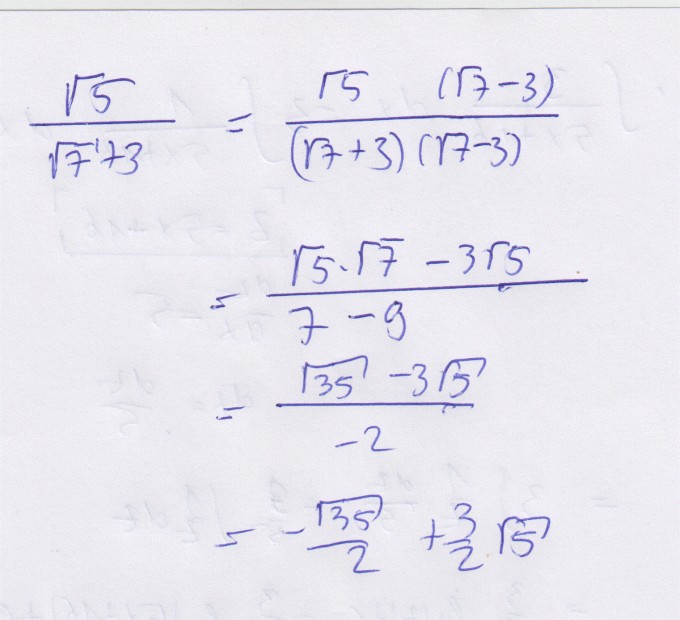 √5/(√7+3) = √5 (√7-3)/((√7+3)(√7-3))
= (√5·√7 - 3√5)/(7-9)
= (√35 - 3√5)/(-2)
= -√35/2 + 3/2 √5